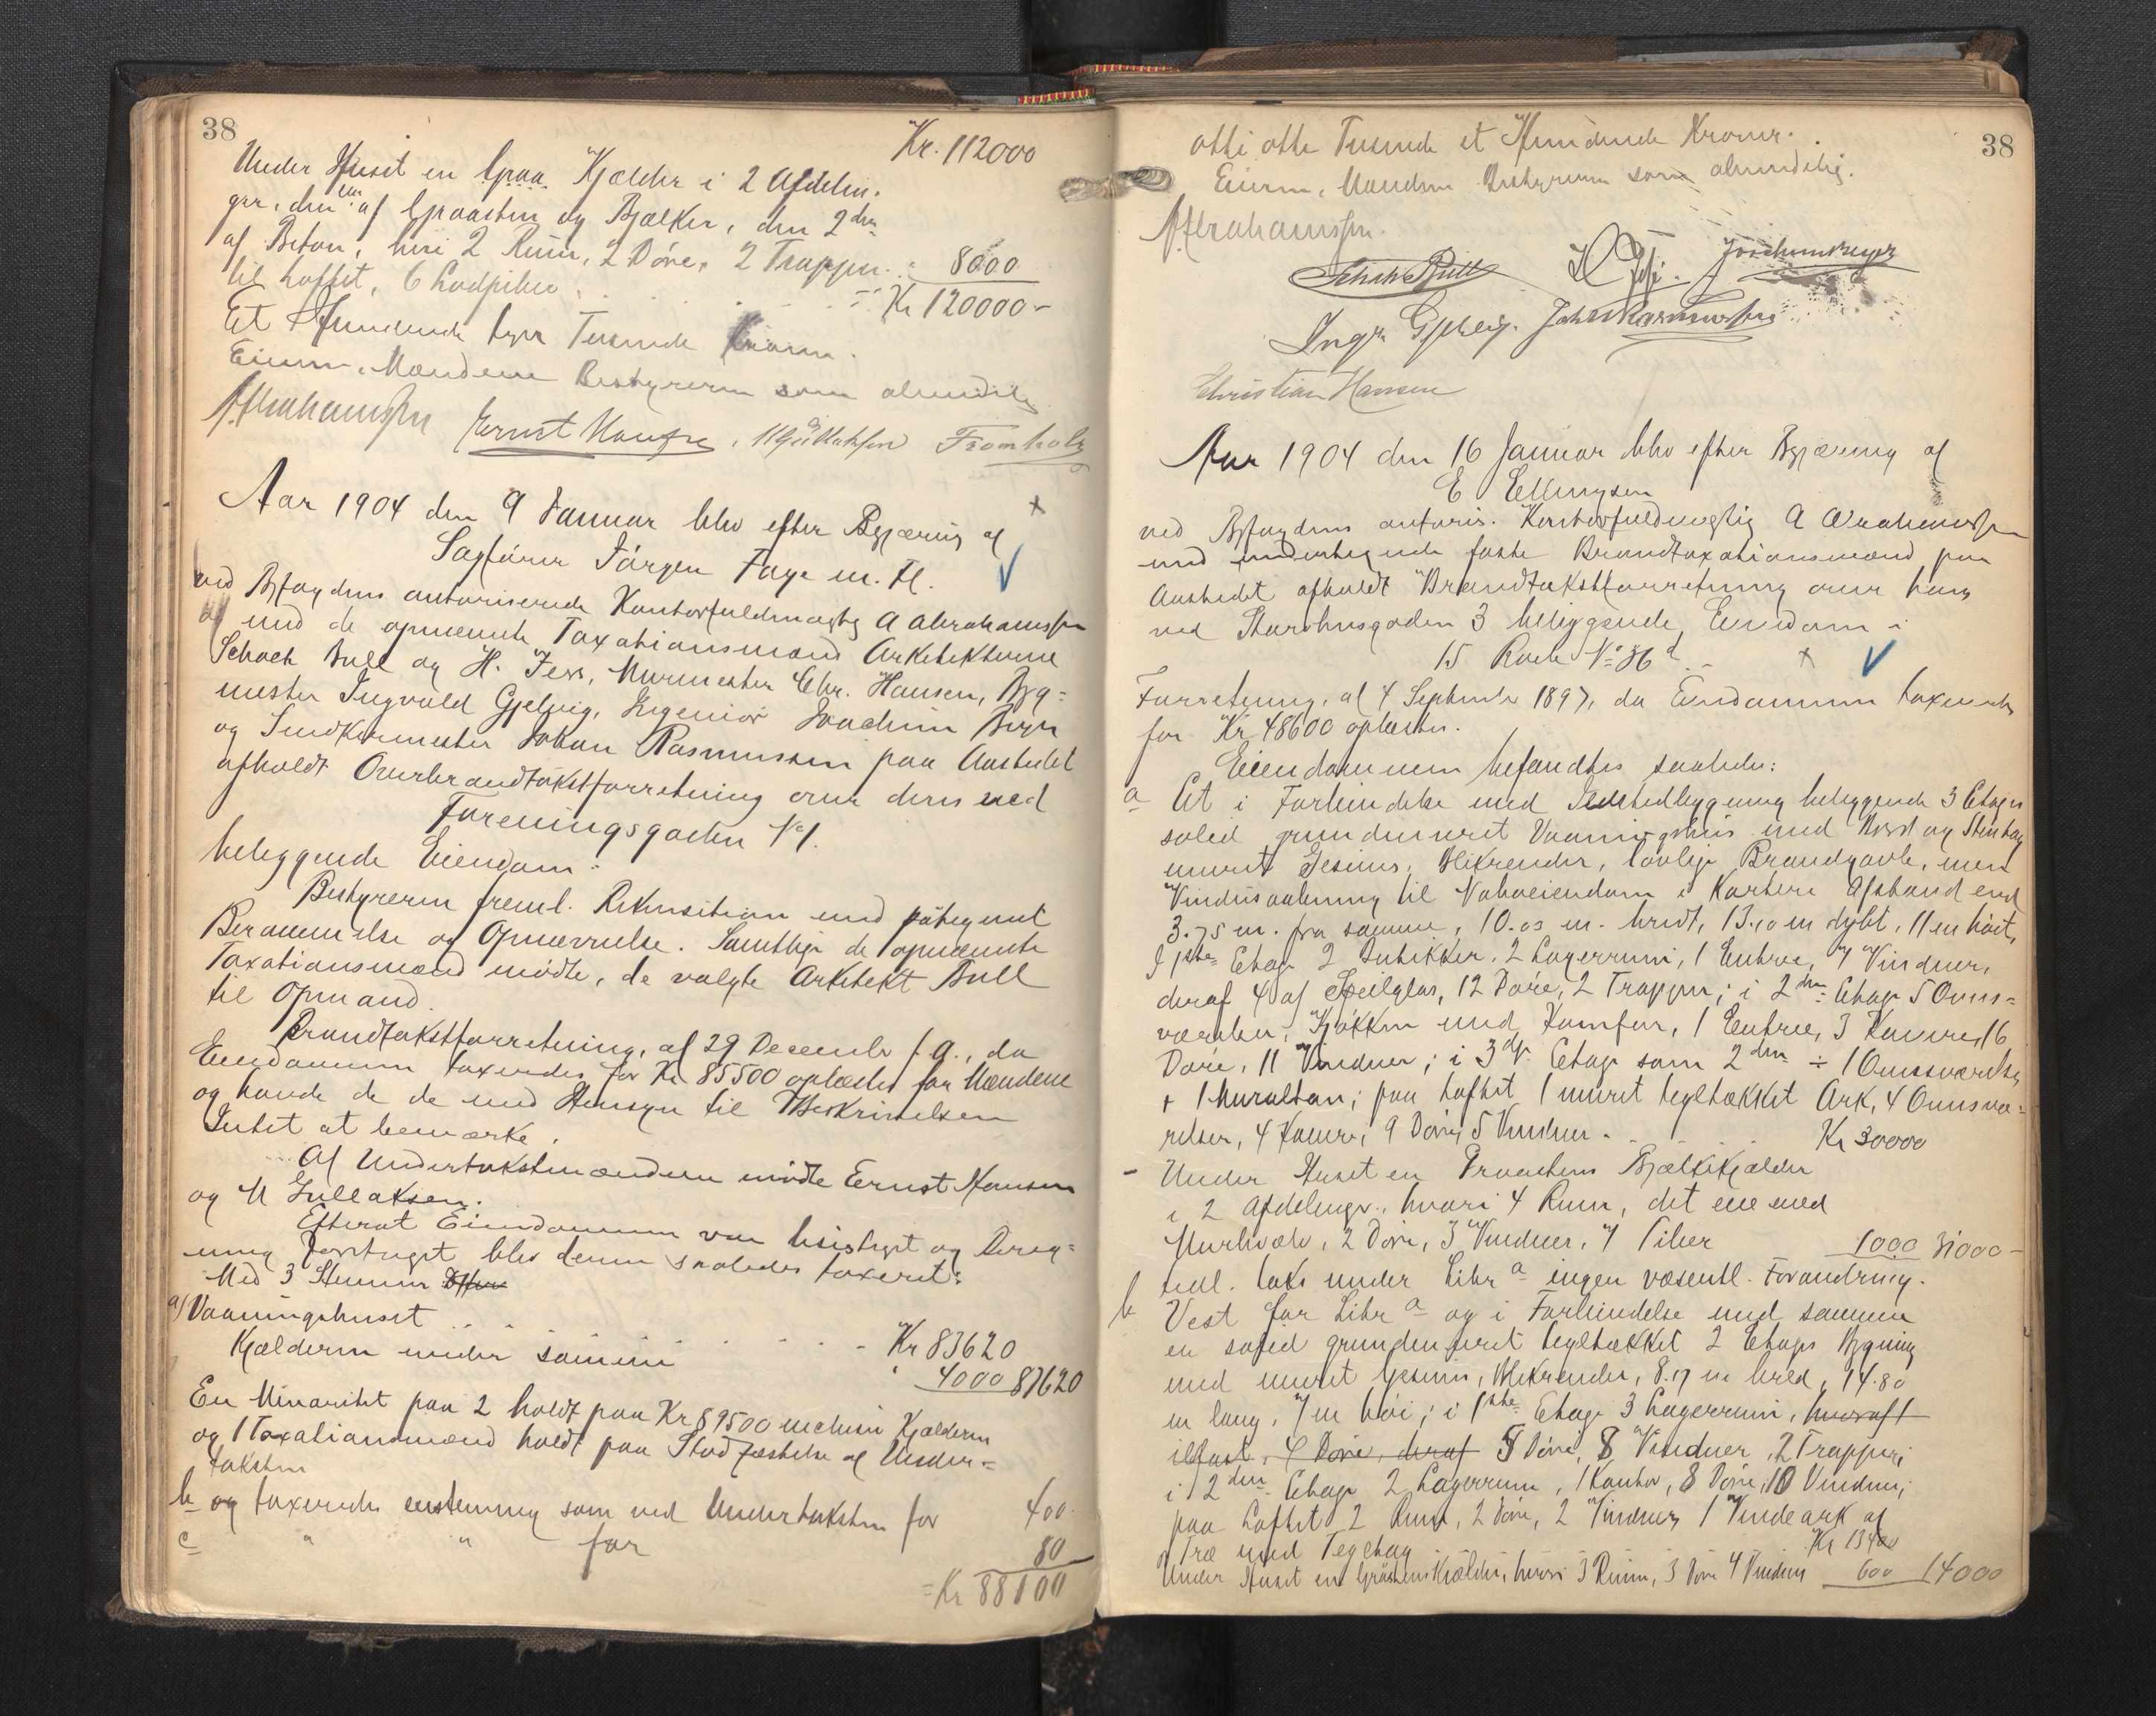 38
Kr. 112000
Under Huset en hpaa Kjælder i 2 Afdelin-
ger, den ene af Graasten og Bjælker, den 2den
af Beton, hvori 2 Rum, 2 Døre, 2 Trapper
til Loftet, 6 Lodpiber 8000
Kr 120000-
Et Hundrede tyve Tusinde Kroner.
Eieren, Mændene Bestyreren som almindelig
A. Abrahamssen Ernst Hansen, M Gullaksen Fromholz
Aar 1904 den 9 Januar blev efter Begjæring af
Sagfører Jørgen Faye m. Fl.
ved Byfogdens autoriserede Kontorfuldmægtig A Abrahamssen
og med de opnævnte Taxationsmænd Arkitekterne
Schack Bull og H. Jess, Murmester Chr. Hansen, Byg=
mester Ingvald Gjelvig, Ingeniør Joachim Berger
og Snedkermester Johan Rasmussen paa Aastedet
afholdt Overbrandtakstforretning over deres ved
Foreningsgaden No 1.
beliggende Eiendom:
Bestyreren freml. Rekvisition med påtegnet
Berammelse og Opnævnelse. Samtlige de opnævnte
Taxationsmænd mødte, de valgte Arkitekt Bull
til Opmand.
Brandtakstforretning, af 29 December f. A., da
Eiendommen taxeredes for Kr 85500 oplæstes for Mændene
og havde de de med Hensyn til Beskrivelsen
Intet at bemærke.
Af Undertakstmændene mødte Ernst Hansen
og M Gullaksen.
Efterat Eiendommen var besigtiget og Bereg=
ning foretaget blev denne saaledes taxeret:
Med 3 Stemmer
a) Vaaningshuset Kr 83620
Kjælderen under samme " 4000 87620
En Minoritet paa 2 holdt paa Kr 89500 inclusive Kjælderen
og 1 Taxationsmænd holdt paa Stadfæstelse af Under=
taksten
b og taxeredes enstemmig som ved Undertaksten for 400
c " " for 80
= Kr 88100
38
otti otte Tusinde et Hundrede Kroner.
Eieren, Mændene Bestyreren som almindelig.
A. Abrahamssen.
Schak Bull H Jess. Joachim Berger
Ingv. Gjelvig. Johan Rasmussen
Christian Hansen
Aar 1904 den 16 Januar blev efter Begjæring af
E Ellingsen
ved Byfogdens autoris. Kontorfuldmægtig A Abrahamssen
med undertegnede faste Brandtaxationsmænd paa
Aastedet afholdt Brandtakstforretning over hans
ved Starvhusgaden 3 beliggende Eiendom i
15 Rode No 36d
Forretning, af 4 September 1897, da Eiendommen taxeredes
for Kr 48600 oplæstes.
Eiendommen befandtes saaledes:
a Et i Forbindelse med Sidebebyggning beliggende 3 Etages
solid grundmuret Vaaningshus med Kvist og Stentag
muret Gesims, Blikrender, lovlige Brandgavle, men
Vindusaabning til Naboeiendom i kortere Afstand end
3.75 m. fra samme, 10.03 m. bredt, 13.10 m dybt, 11 m høit,
I 1ste Etage 2 Butikker, 2 Lagerrum, 1 Entree, 7 Vinduer,
deraf 4 af Speilglas, 12 Døre, 2 Trapper; i 2den Etage 5 Ovns=
værelser, Kjøkken med Komfur, 1 Entree, 3 Kamre, 16
Døre, 11 Vinduer; i 3die Etage som 2den ÷ 1 Ovnsværelse
+ 1 Muraltan; paa Loftet 1 muret tegltækket Ark, 4 Ovnsvæ=
relser, 4 Kamre, 9 Døre, 5 Vinduer. Kr 30000
- Under Huset en Graastens Bjælkekjælder
i 2 Afdelinger, hvori 4 Rum, det ene med
Murhvælv, 2 Døre, 3 Vinduer, 7 Piber 1000 31000-
Indl. taks under Litr a ingen væsentl. Forandring.
b Vest for Litr a og i Forbindelse med samme
en solid grundmuret tegltækket 2 Etages Bygning
med muret Gesims, Blikrender, 8.17 m bred, 14.80
m lang, 7 m høi; i 1ste Etage 3 Lagerrum, hvoraf 1
ildfast, 4 Døre, deraf 5 Døre, 8 Vinduer, 2 Trapper;
i 2den Etage 2 Lagerrum, 1 Kontor, 8 Døre, 10 Vinduer;
paa Loftet 2 Rum, 2 Døre, 2 Vinduer, 1 Vindeark af
Træ med Teglhag Kr 13400
Under Huset en Gråstens Kjælder, hvori 3 Rum, 3 Døre 4 Vinduer 600 14000